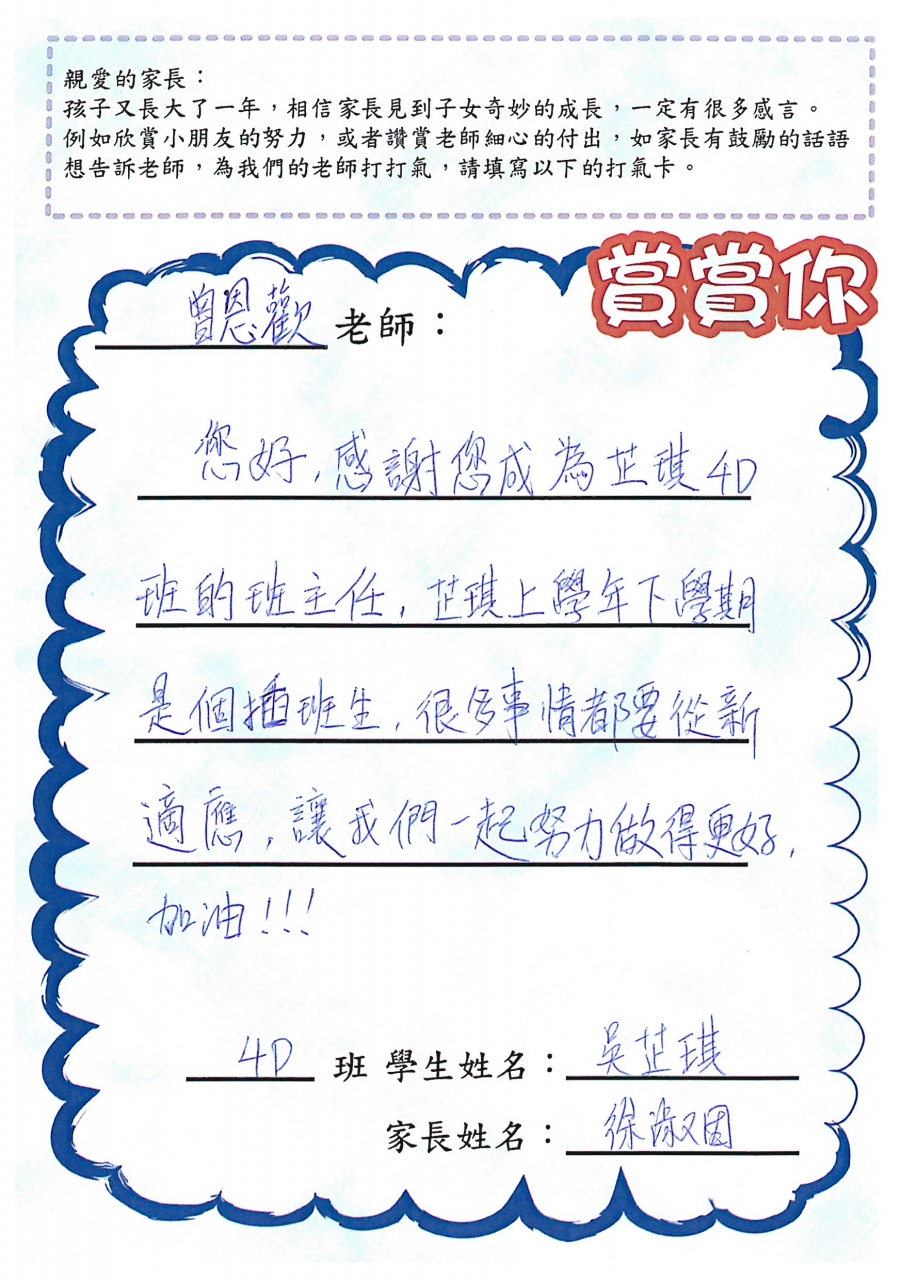 親愛的家長：
孩子又長大了一年，相信家長見到子女奇妙的成長，一定有很多感言。
例如欣賞小朋友的努力，或者讚賞老師細心的付出，如家長有鼓勵的話語
想告訴老師，為我們的老師打打氣，請填寫以下的打氣卡。
賞賞你
曾恩歡 老師：
您好，感謝您成為芷琪4D
班的班主任，芷琪上學年下學期
是個插班生，很多事情都要從新
適應，讓我們一起努力做得更好，
加油！！！
4D 班 學生姓名：吳芷琪
家長姓名：徐淑因